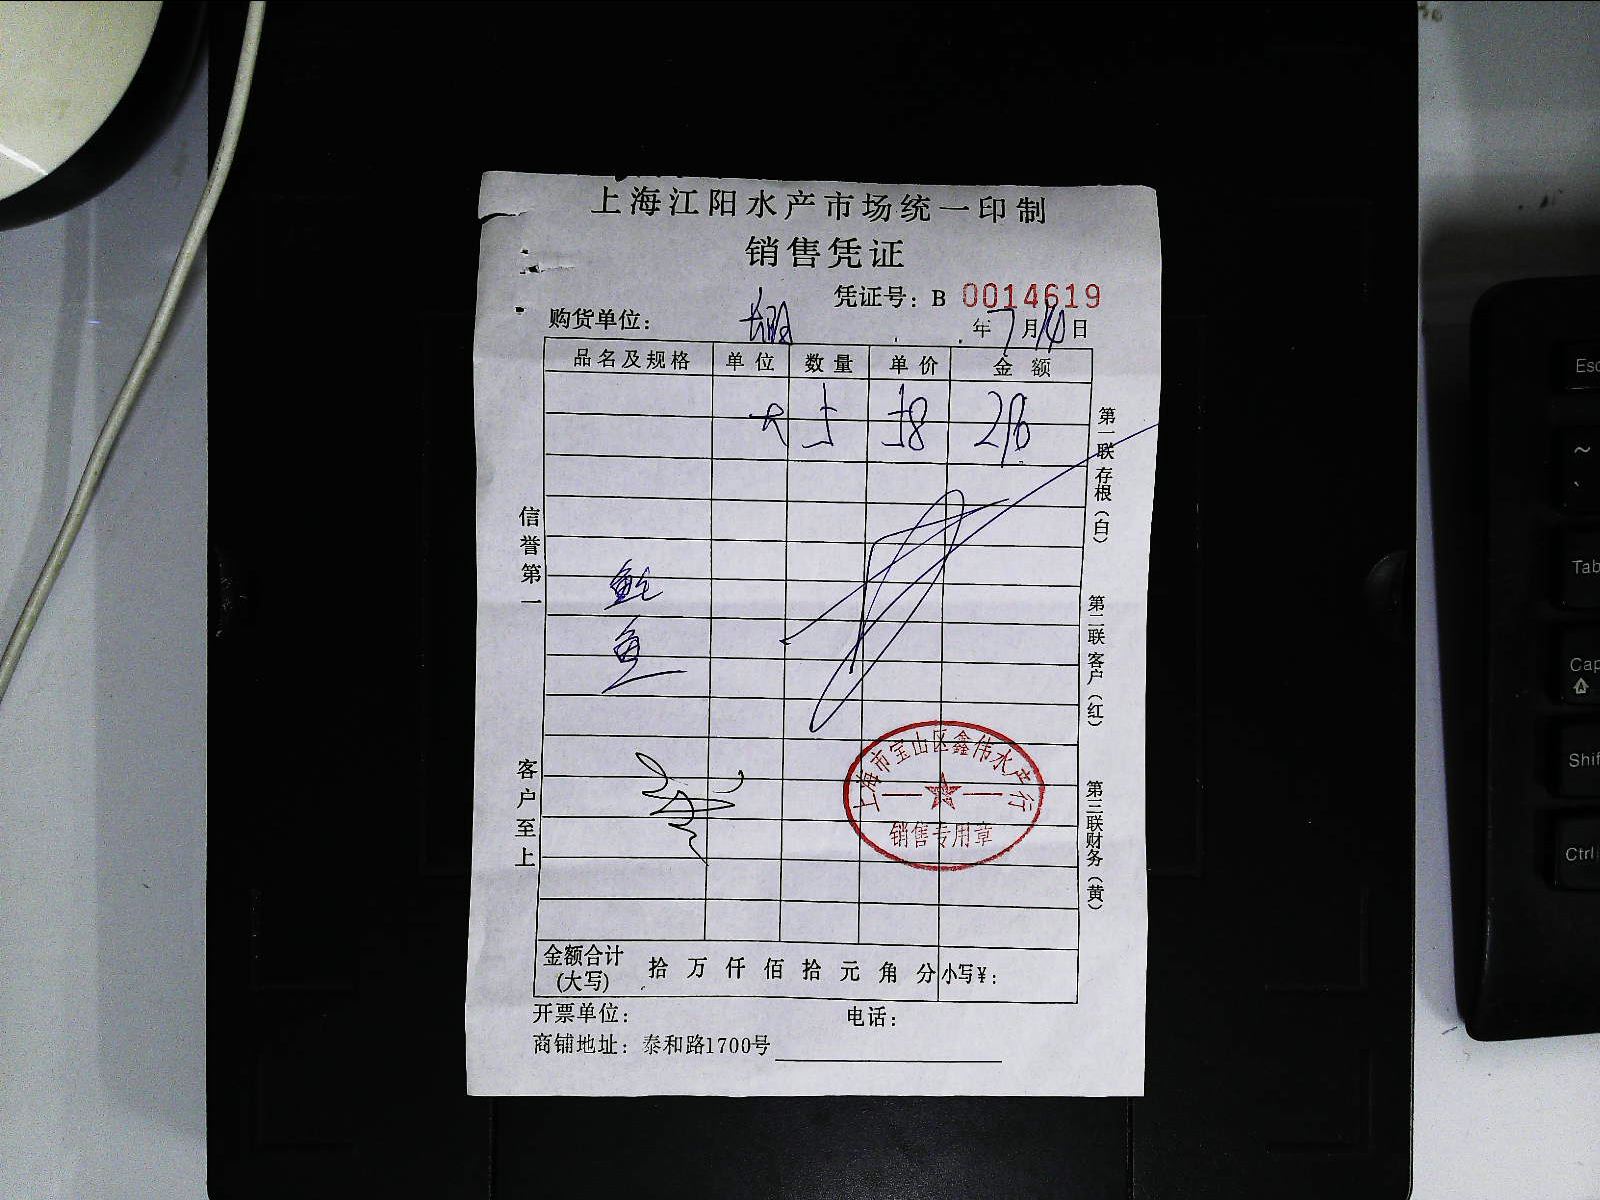 上海江阳水产市场统一印制
销售凭证
凭证号：B 0014619
购货单位：
年7月14日
品名及规格 单位 数量 单价 金额
216
信誉第一
客户至上
鮑
鱼
第一联存根（白）
第二联客户（红）
第三联财务（黄）
上海市宝山区鑫伟水产行
销售专用章
金额合计（大写） 拾 万 仟 佰 拾 元 角 分 小写¥：
开票单位： 电话：
商铺地址：泰和路1700号
Esc
~
`
Tab
Cap
Shif
Ctrl